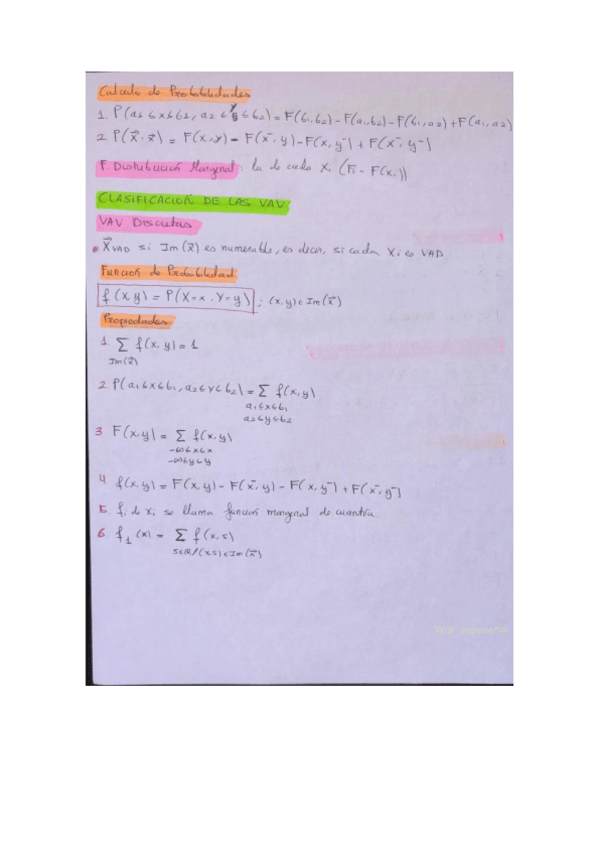 Calculo de Probabilidades
1. P(a₁ ≤ x ≤ b₁, a₂ ≤ y ≤ b₂) = F(b₁,b₂) - F(a₁,b₂) - F(b₁,a₂) + F(a₁,a₂)
2. P(X⃗ = x⃗) = F(x,y) - F(x⁻,y) - F(x,y⁻) + F(x⁻,y⁻)
F. Distribución Marginal: la de cada Xi (Fi = F(xi))
CLASIFICACION DE LAS VAV
VAV Discretas
• X⃗ VAD si Im(x⃗) es numerable, es decir, si cada Xi es VAD.
Funcion de Probabilidad
f(x,y) = P(X=x, Y=y) ; (x,y) ∈ Im(x⃗)
Propiedades
1. Σ f(x,y) = 1
Im(x⃗)
2. P(a₁≤x≤b₁, a₂≤y≤b₂) = Σ f(x,y)
a₁≤x≤b₁
a₂≤y≤b₂
3. F(x,y) = Σ f(x,y)
-∞≤x≤x
-∞≤y≤y
4. f(x,y) = F(x,y) - F(x⁻,y) - F(x,y⁻) + F(x⁻,y⁻)
5. fi de xi se llama funcion marginal de cuantía
6. f₁(x) = Σ f(x,s)
s∈ℝ/(x,s)∈Im(x⃗)